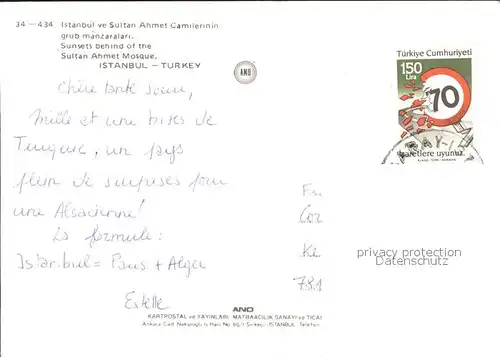 34—434 Istanbul ve Sultan Ahmet Camilerinin
grub manzaraları.
Sunsets behind of the
Sultan Ahmet Mosque.
ISTANBUL – TURKEY
AND
Türkiye Cumhuriyeti
150
Lira
70
işaretlere uyunuz.
Chère tante
Mille et une bises de
Turquie, un pays
plein de surprises pour
une Alsacienne!
La formule:
Istanbul = Paris + Alger
Estelle
privacy protection
Datenschutz
AND
KARTPOSTAL ve YAYINLARI, MATBAACILIK SANAYI ve TICA
Ankara Cad. No: 66/1 Sirkeci-ISTANBUL Telefon